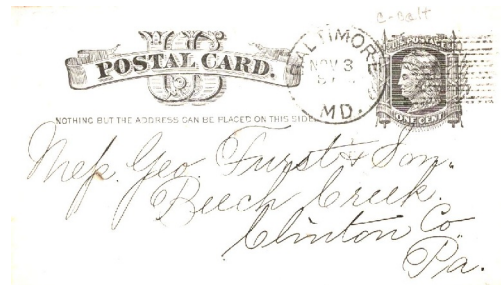 c-balt
US
POSTAL CARD.
BALTIMORE
NOV 3
MD.
U.S. POSTAGE
ONE CENT
NOTHING BUT THE ADDRESS CAN BE PLACED ON THIS SIDE.
Mess. Geo. Furst & Son.
Beech Creek.
Clinton Co.
Pa.